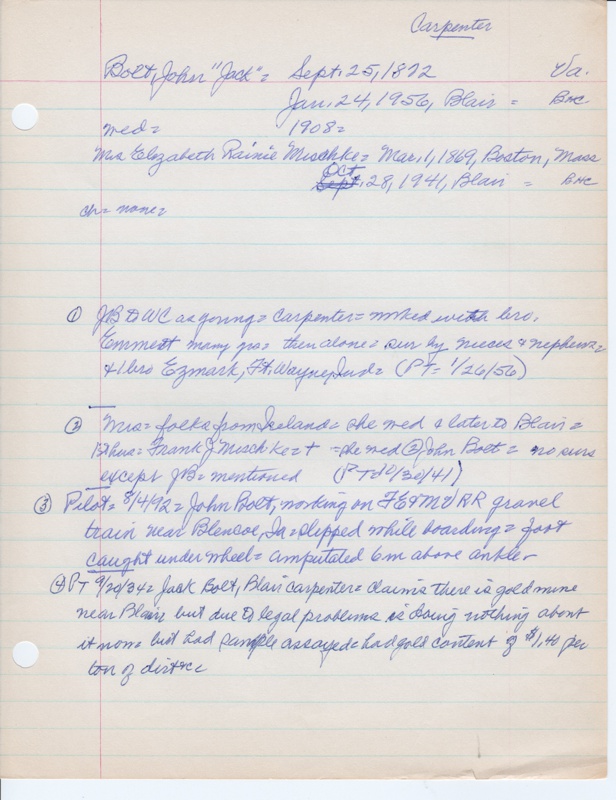 Carpenter
Bolt, John "Jack" = Sept. 25, 1872 Va.
Jan. 24, 1956, Blair = BHC
med = 1908 =
Mrs Elizabeth Rainie Mischke = Mar. 1, 1869, Boston, Mass
Oct.
Sept. 28, 1941, Blair = BHC
ch = none =
① JB to WC as young = carpenter = worked with bro.
Emmett many yrs = then alone = sur by nieces & nephews =
& 1 bro Ezmark, Ft. Wayne, Ind = (PT = 1/26/56)
② Mrs = folks from Iceland = she med & later to Blair =
1st hus = Frank J Mischke = + = she med ② John Bolt = no surs
except JB = mentioned (PT 10/30/41)
③ Pilot = 8/4/92 = John Bolt, working on FE & MV RR gravel
train near Blencoe, Ia = slipped while boarding = foot
caught under wheel = amputated 6 in above ankle -
④ PT 9/20/34 = Jack Bolt, Blair carpenter = claims there is gold mine
near Blair but due to legal problems is doing nothing about
it now = but had sample assayed = had gold content of $1.40 per
ton of dirt